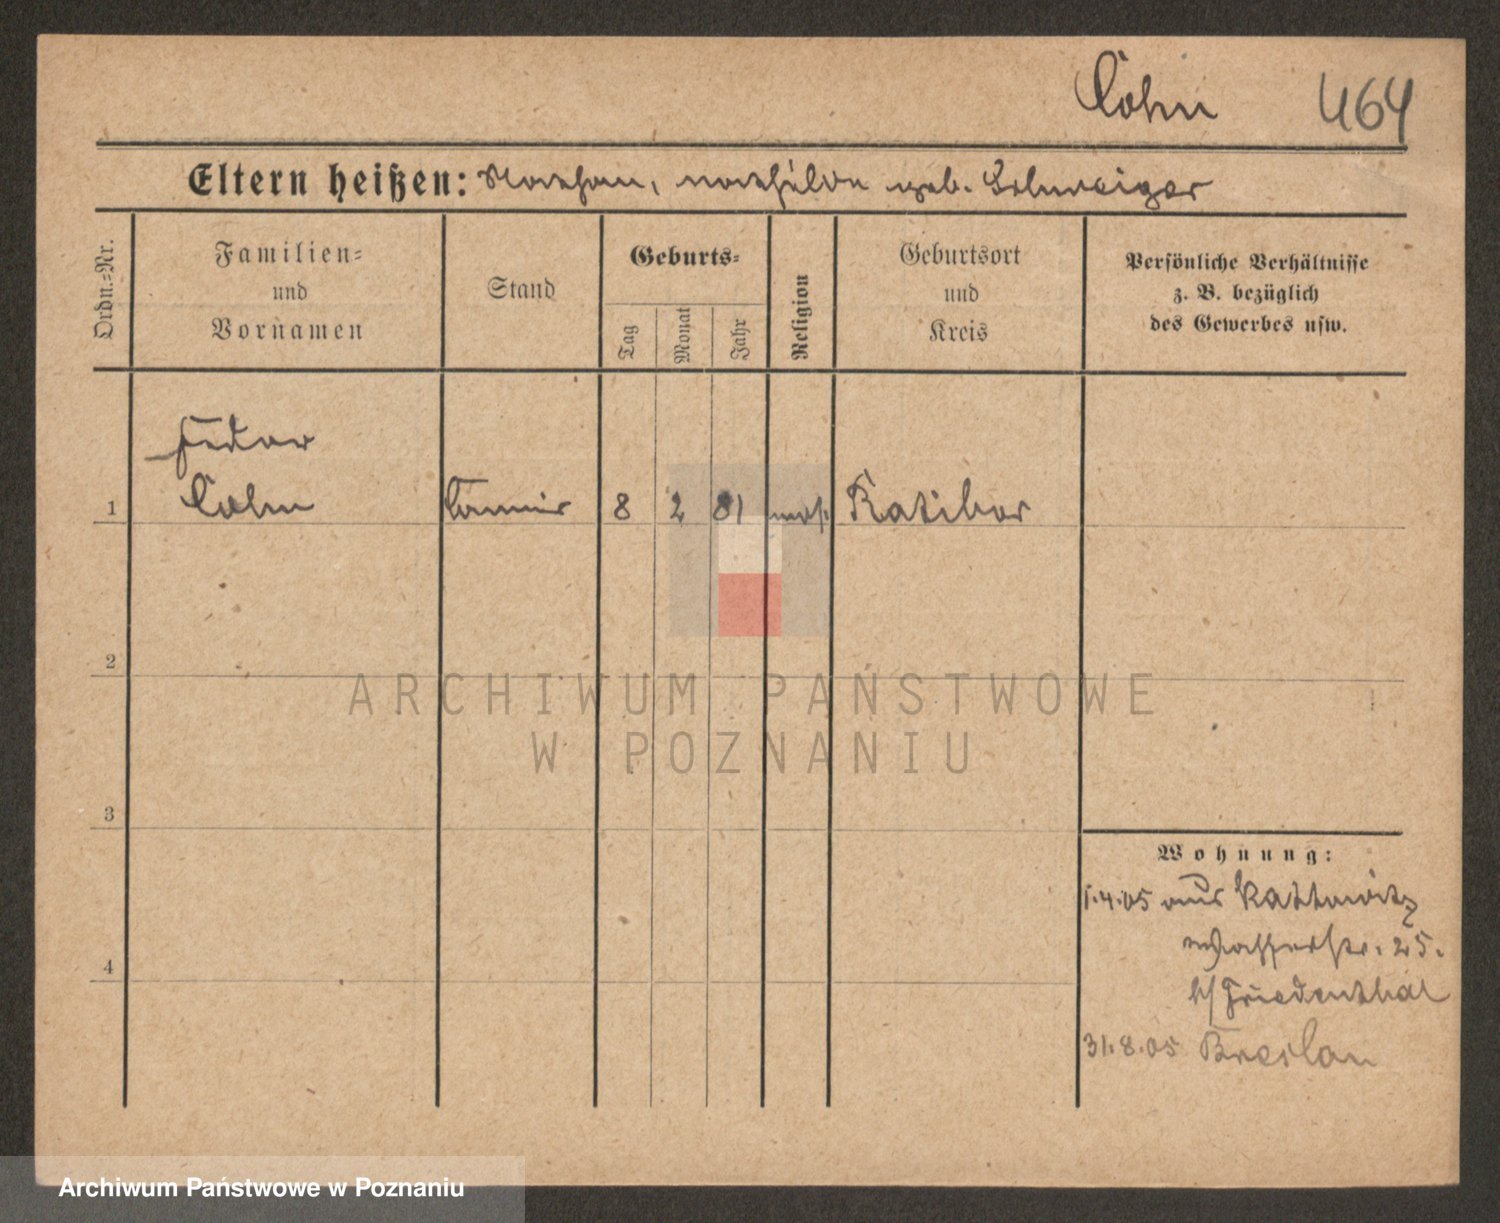 Cohn 464
Eltern heißen: Nathan, Mathilde geb. Schweiger
Ordn.-Nr.
Familien- und Vornamen
Stand
Geburts-
Tag
Monat
Jahr
Religion
Geburtsort und Kreis
Persönliche Verhältnisse
z. B. bezüglich
des Gewerbes usw.
Fedor
1 Cohn Commis 8 2 81 mos. Ratibor
2
3
4
Wohnung:
1.4.05 aus Kattowitz
Wasserstr. 25.
b/ Friedenthal
31.8.05 Breslau
ARCHIWUM PAŃSTWOWE
W POZNANIU
Archiwum Państwowe w Poznaniu